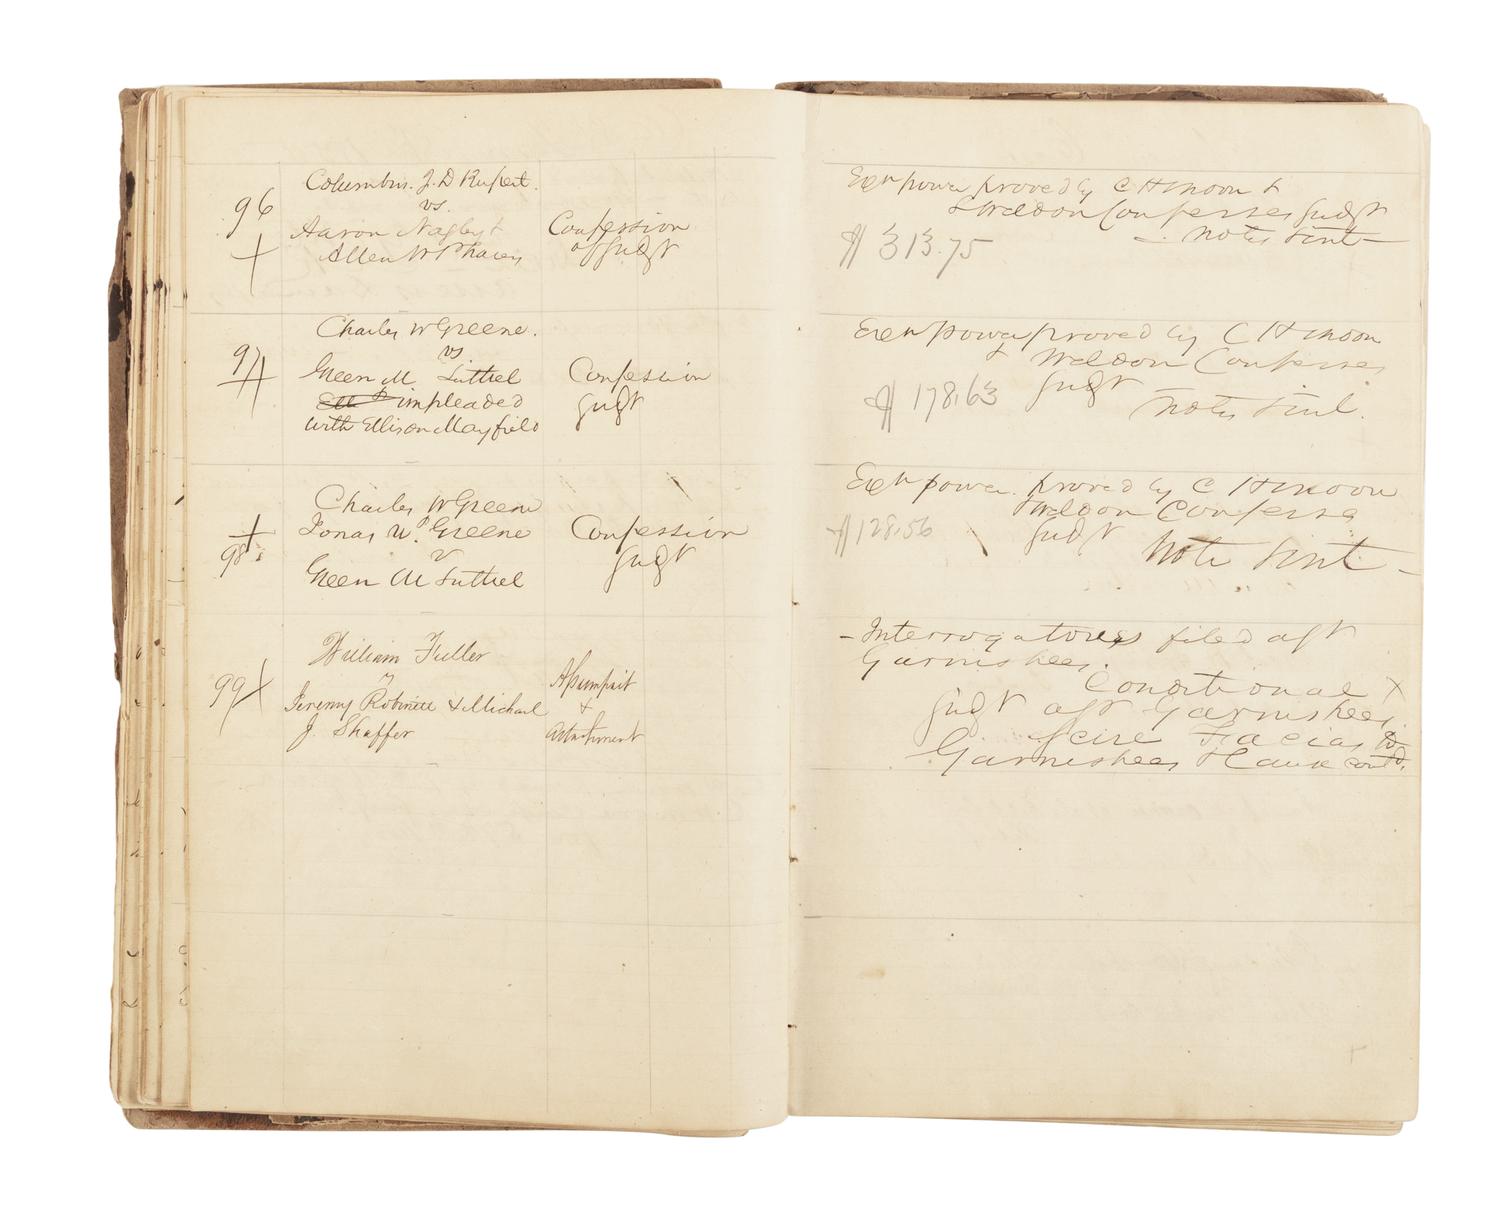 96
Columbus. J. D Rupert.
vs.
Aaron Nagly &
Allen W Phares
Confession
of Judgt
Exn power proved by C H Moon &
& Weldon Confesses Judgt
Note Sint
$ 313.75
97
Charles W Greene.
vs
Green M Luttrel
impleaded
with Ellison Mayfield
Confession
Judgt
Exn power proved by C H Moon
& Weldon Confesses
Judgt
$ 178.63
Note Sint.
98
Charles W Greene
Jonas W. Greene
v
Green M Luttrel
Confession
Judgt
Exn power proved by C H Moon
Weldon Confesses
Judgt
$ 128.56
Note Sint
99
William Fuller
vs
Jeremy Robinett & Michael
J. Shaffer
Assumpsit
&
Attachment
Interrogatories filed agst
Garnishees.
Conditional
Judgt agst Garnishees.
Scire Facias to
Garnishees & Cause contd.